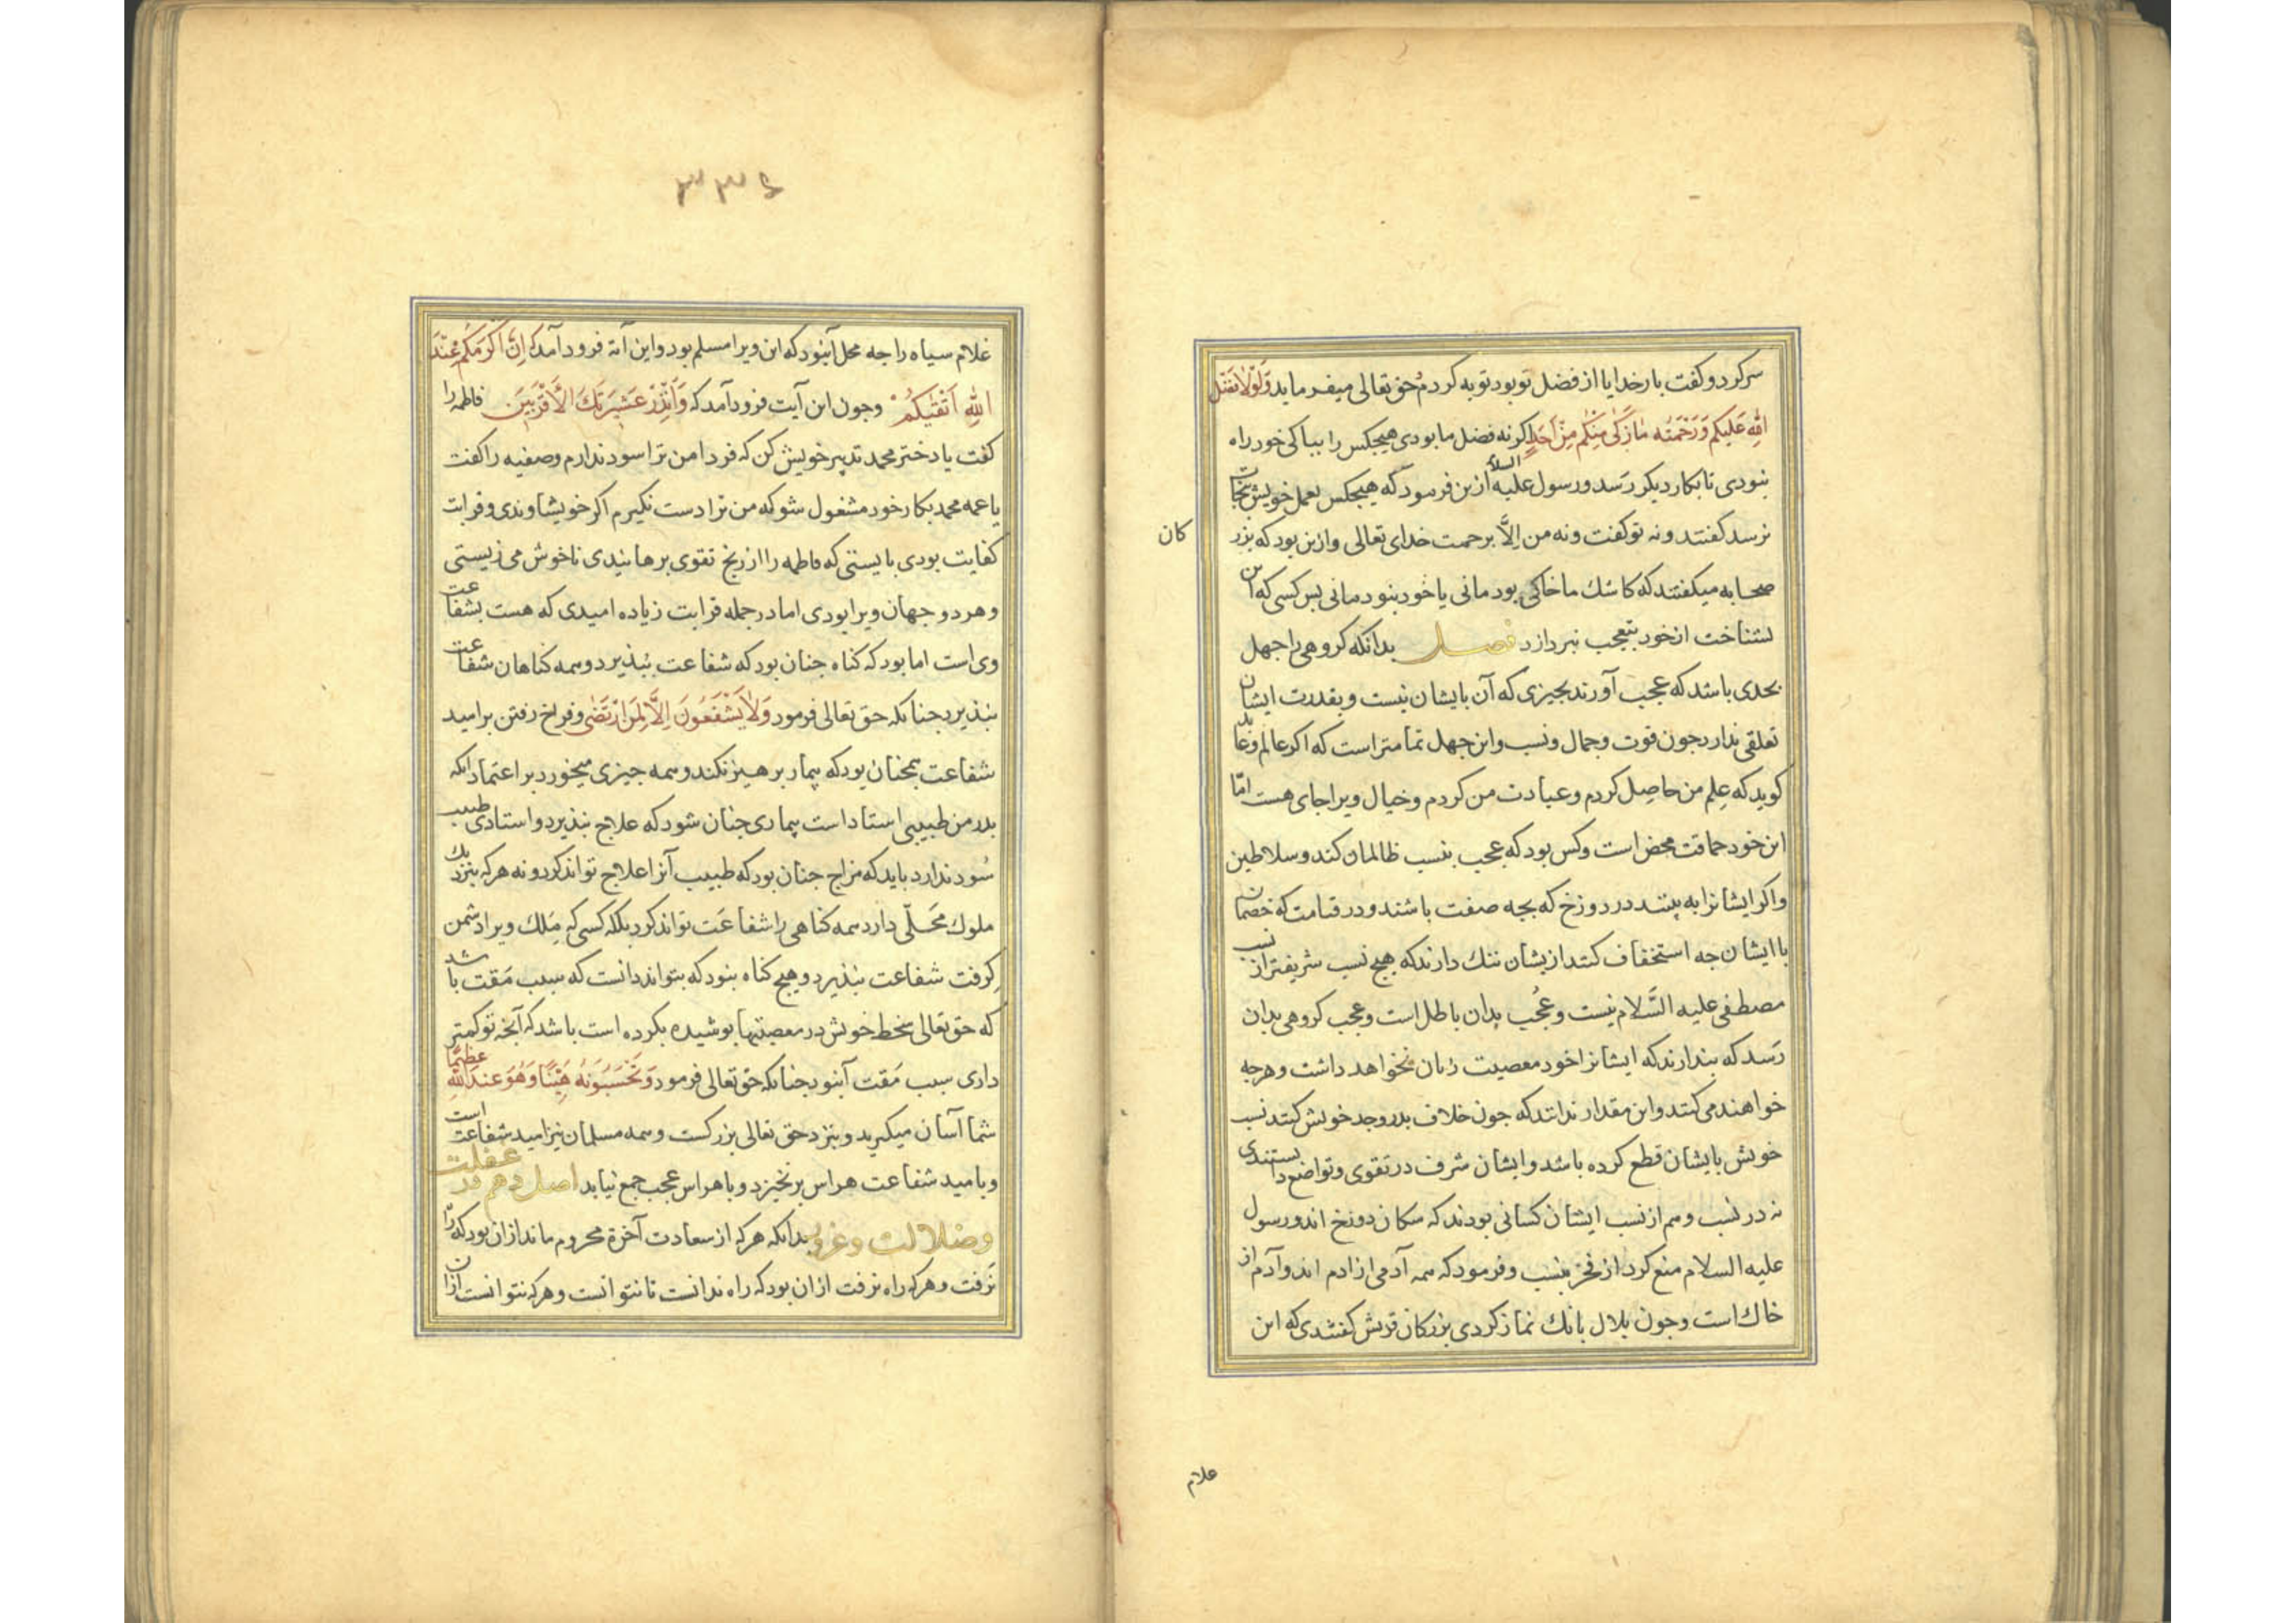 سر کرد و کفت بار خدایا از فضل تو بود توبه کردم حق تعالی میفرماید وَلَوْلا فَضْلُ
اللهِ عَلَیکُم وَرَحْمَتُه مٰا زَکٰی مِنْکُم مِنْ اَحَدٍ اکر نه فضل ما بودی هیجکس را بپاکی خود راه
نبودی تا بکار دیکر رسد و رسول علیه السلام ازین فرمود که هیجکس بعمل خویش نجات
نرسد کفتند و نه تو کفت و نه من اِلَّا برحمت خدای تعالی و ازین بود که بزر
کان
صحابه میکفتند که کاشك ما خاکی بودمانی یا خود نبودمانی بس کسی که این
بشناخت از خود بتعجب نبردازد فصل بدانکه کروهی را جهل
بحدی باشد که عجب آورند بجیزی که آن بایشان نیست و بقدرت ایشان
تعلقی ندارد جون قوت و جمال و نسب و این جهل تمامتر است که اکر عالم و عابد
کوید که عِلم من حاصِل کردم و عبادت من کردم و خیال ویرا جای هست امّا
این خود حماقت محض است و کس بود که عجب بنسب ظالمان کند و سلاطین
و اکر ایشانرا به بینند در دوزخ که بجه صفت باشند و در قیامت که خصمان
با ایشان جه استخفاف کنند ازیشان ننك دارند که هیج نسب شریفتر از نسب
مصطفی علیه السَّلام نیست و عُجْب بدان باطل است و عجب کروهی بدان
رَسد که بندارند که ایشانرا خود معصیت زیان نخواهد داشت و هرجه
خواهند می کنند و این مقدار ندانند که جون خلاف بدر و جد خویش کنند نسب
خویش بایشان قطع کرده باشد و ایشان شرف در تقوی و تواضع دانستندی
نه در نسب و هم از نسب ایشان کسانی بودند که سکان دوزخ اند و رسول
علیه السلام منع کرد از فخر بنسب و فرمود که همه آدمی از ادم اند و آدم از
خاك است و جون بلال بانك نماز کردی بزرکان قریش کفتندی که این
غلام
۳۳۶
غلام سیاه را جه محل آنبود که این ویرا مسلم بود و این آیة فرود آمد که اِنَّ اَکْرَمَکُم عِنْدَ
اللهِ اَتْقٰیکُمْ و جون این آیت فرود آمد که وَاَنْذِرْ عَشِیْرَتَكَ الْاَقْرَبِیْنَ فاطمه را
کفت یا دختر محمد تدبیر خویش کن که فردا من ترا سود ندارم و صفیه را کفت
یا عمه محمد بکار خود مشغول شو که من ترا دست نکیرم اکر خویشاوندی و قرابت
کفایت بودی بایستی که فاطمه را از رنج تقوی برهانیدی تا خوش می زیستی
و هر دو جهان ویرا بودی اما در جمله قرابت زیاده امیدی که هست بشفاعت
وی است اما بود که کناه جنان بود که شفاعت نبذیرد و همه کناهان شفاعت
نبذیرد جنانکه حق تعالی فرمود وَلٰا یَشْفَعُونَ اِلَّا لِمَن ارْتَضٰی و فراخ رفتن بر امید
شفاعت همجنان بود که بیمار برهیز نکند و همه جیزی میخورد بر اعتماد انکه
بدر من طبیبی استاد است بیماری جنان شود که علاج نبذیرد و استادی طبیب
سُود ندارد باید که مزاج جنان بود که طبیب آنرا علاج تواند کرد و نه هر که بنزدیك
ملوك مَحَلّی دارد همه کناهی را شفاعت تواند کرد بلکه کسی که مَلِك ویرا دشمن
کِرفت شفاعت نبذیرد و هیج کناه نبود که بتواند دانست که سبب مَقت باشد
که حق تعالی سخط خویش در معصیتها بوشیده بکرده است باشد که آنجه تو کمتر
داری سبب مَقت آنبود جنانکه حق تعالی فرمود وَتَحْسَبُونَهُ هَیِّنًا وَهُوَ عِندَ اللهِ عَظِیمٌ
شما آسان میکیرید و بنزد حق تعالی بزرکست و همه مسلمان نیز امید شفاعت است
و بامید شفاعت هراس برنخیزد و با هراس عجب جمع نیاید اصل دهم در غفلت
و ضلالت و غرور بدانکه هر که از سعادت آخرة محروم ماند از ان بود که راه
نَرفت و هر که راه نرفت از ان بود که راه ندانست تا نتوانست و هر که نتوانست از ان